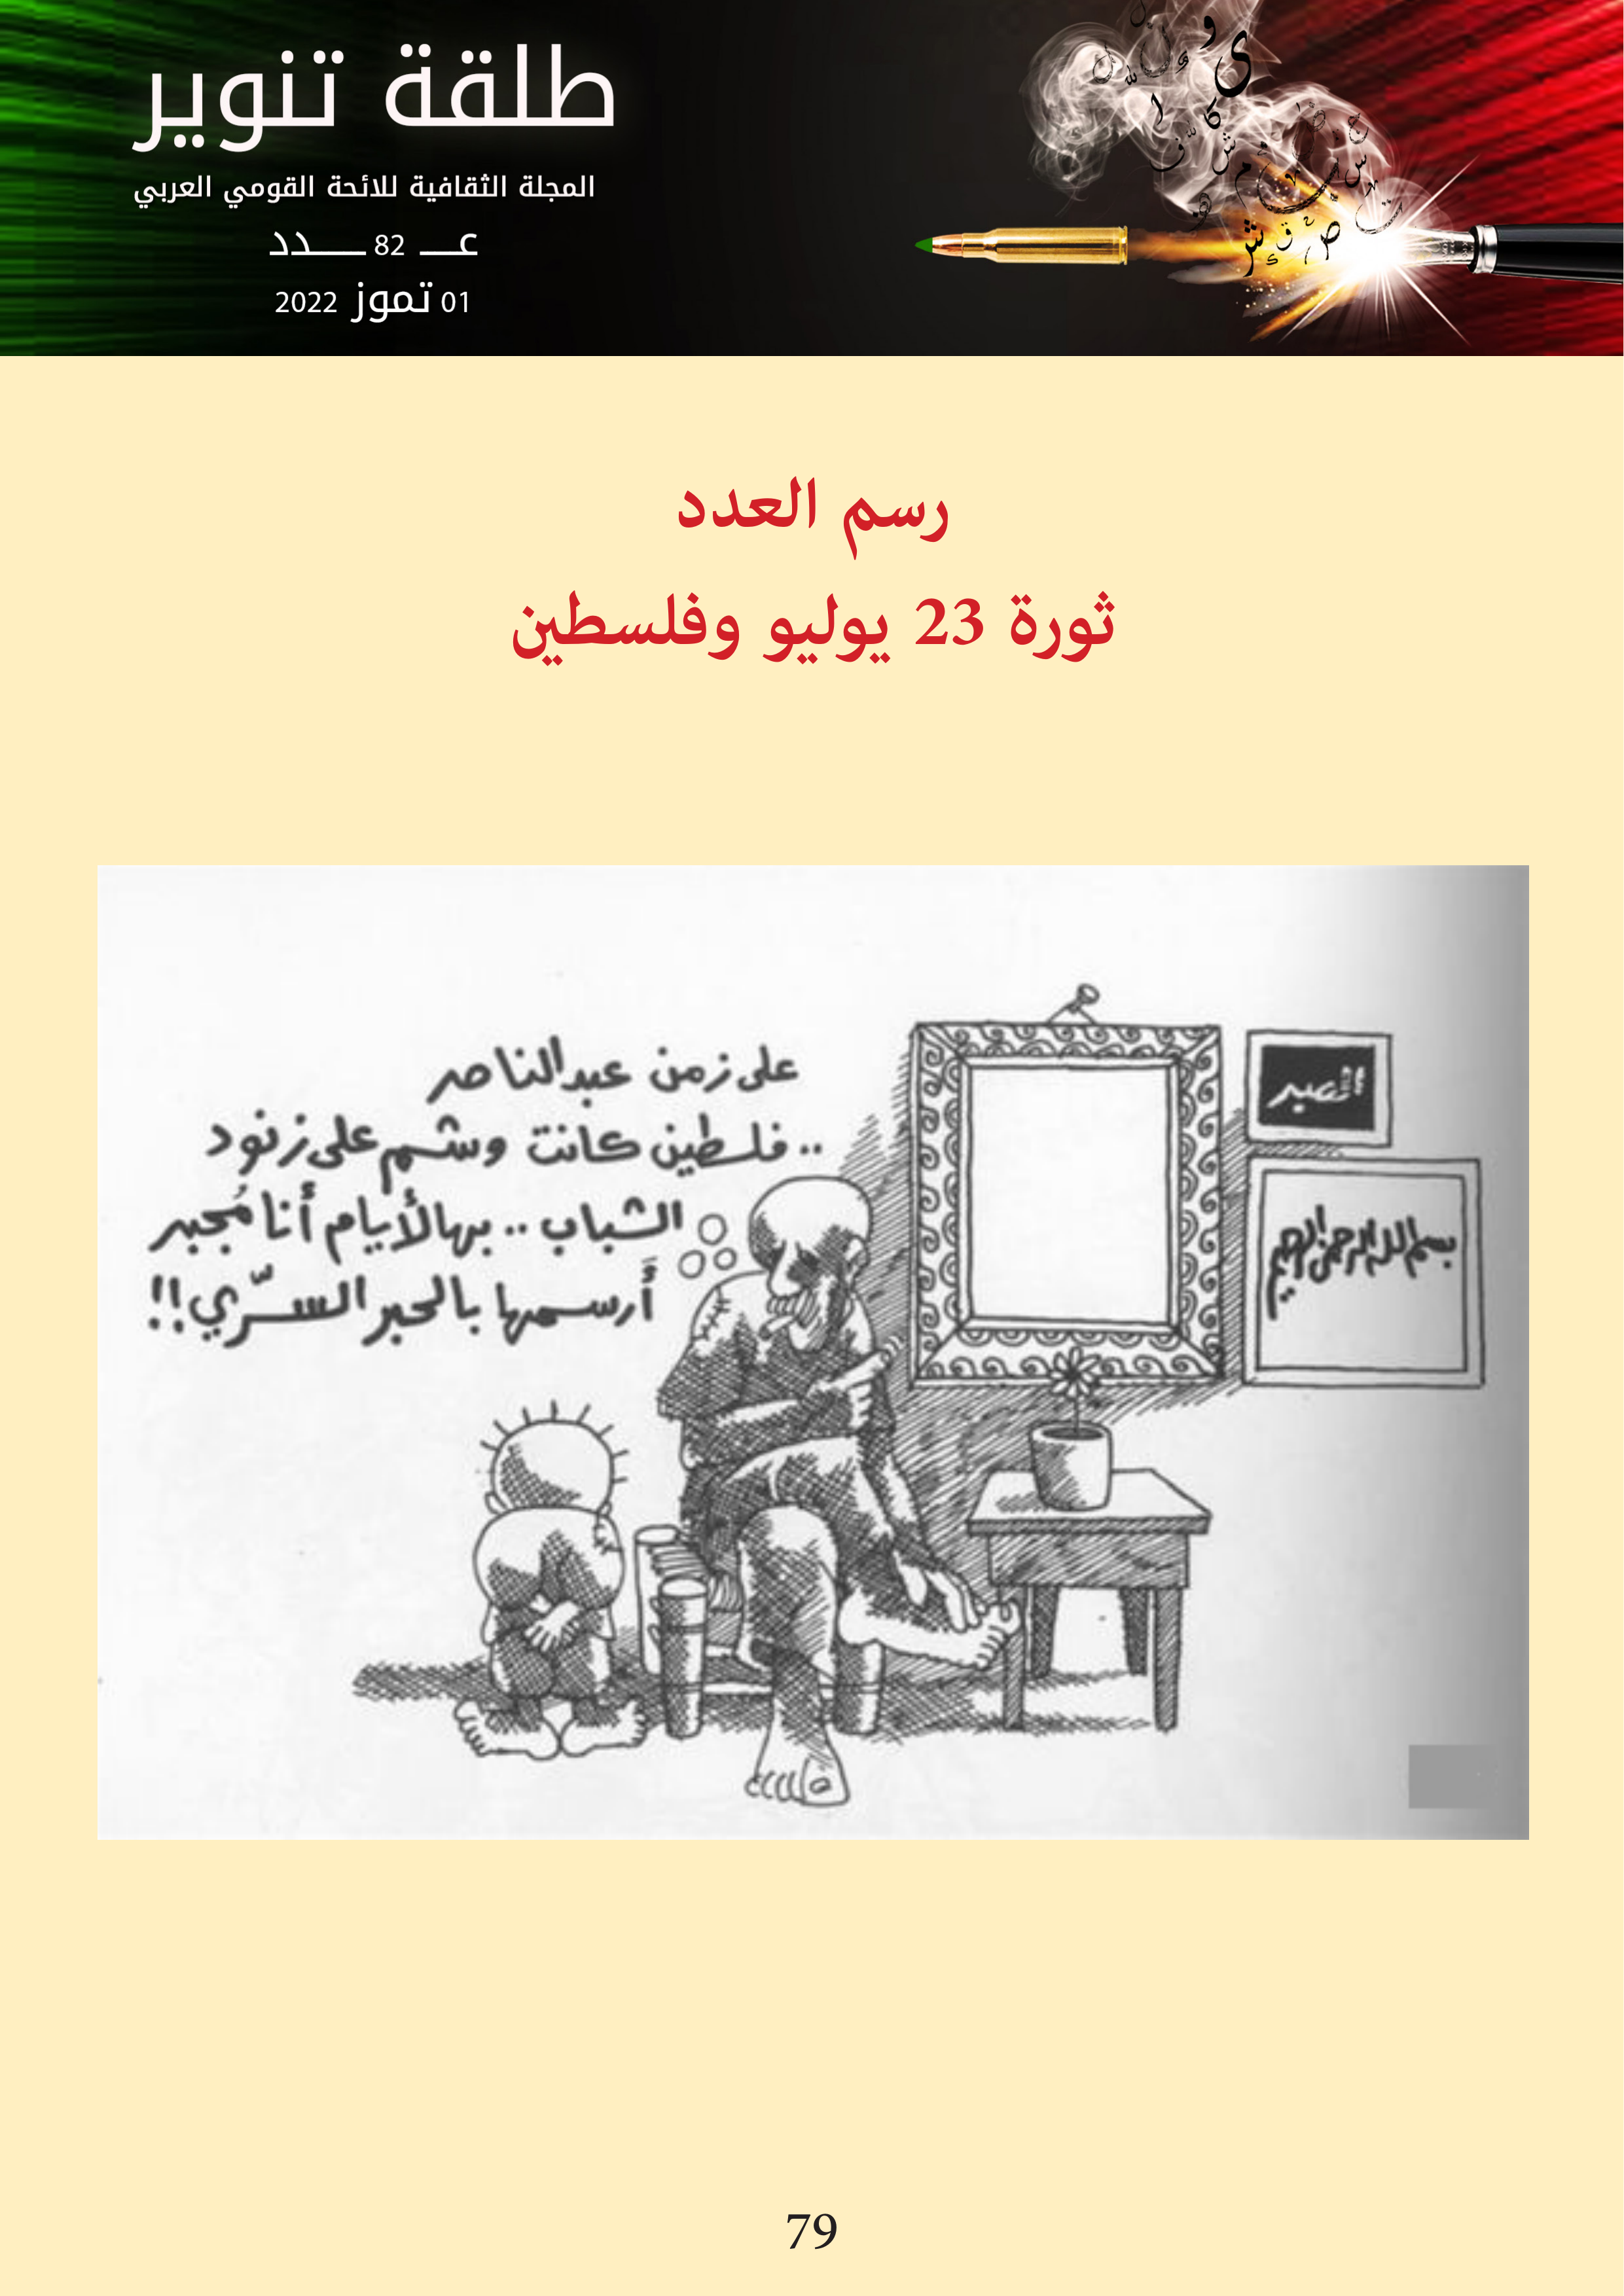 طلقة تنوير
المجلة الثقافية للائحة القومي العربي
عـــ 82 ـــــدد
01 تموز 2022
رسم العدد
ثورة 23 يوليو وفلسطين
على زمن عبد الناصر
.. فلسطين كانت وشم على زنود
الشباب .. بهالأيام أنا مُجبر
أرسمها بالحبر السرّي !!
الصبر
بسم الله الرحمن الرحيم
79